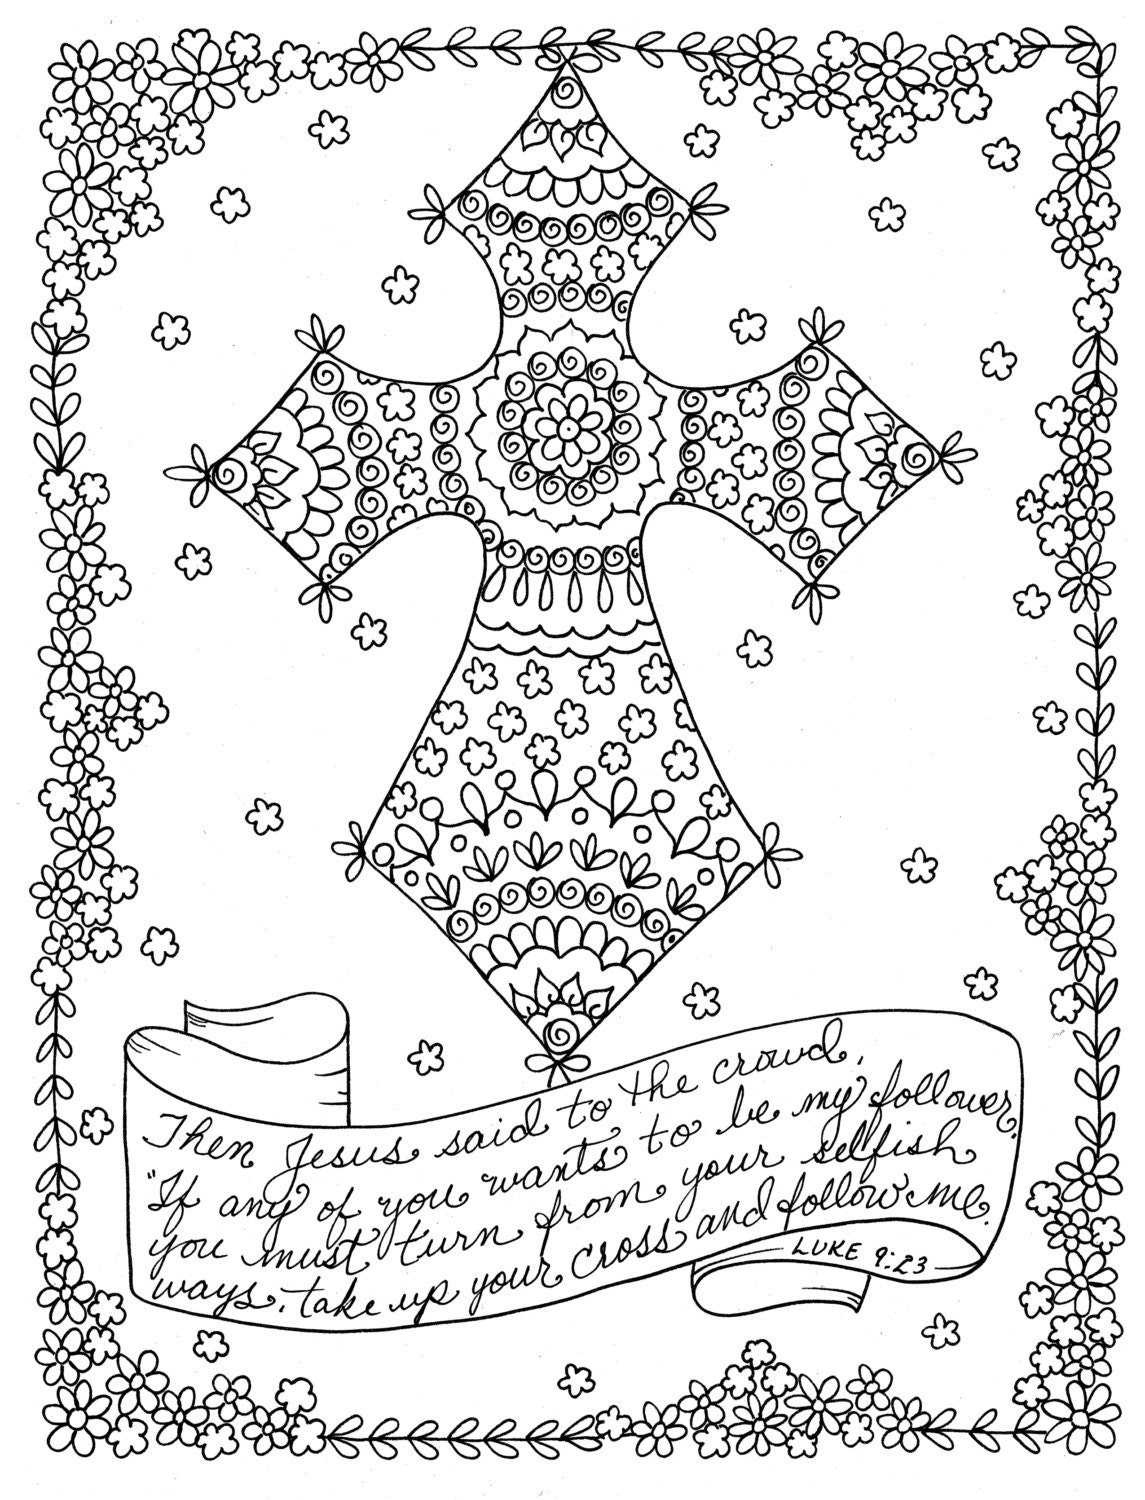 Then Jesus said to the crowd,
"If any of you wants to be my follower,
you must turn from your selfish
ways, take up your cross and follow me.
LUKE 9:23